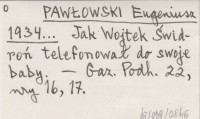 o
PAWŁOWSKI Eugeniusz
1934... Jak Wojtek Świd-
roń telefonował do swoje
baby. — Gaz. Podh. 22,
nry 16, 17.